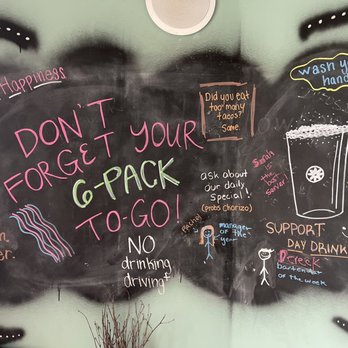 Happiness
DON'T
FORGET YOUR
6-PACK
TO-GO!
NO
drinking
driving
Did you eat
too many
tacos?
Same.
ask about
our daily
Special!
(probs Chorizo)
manager
of the
year
Sarah
is the
best
server!
wash you
hand
SUPPORT
DAY DRINK
Dereck
bartender
of the week